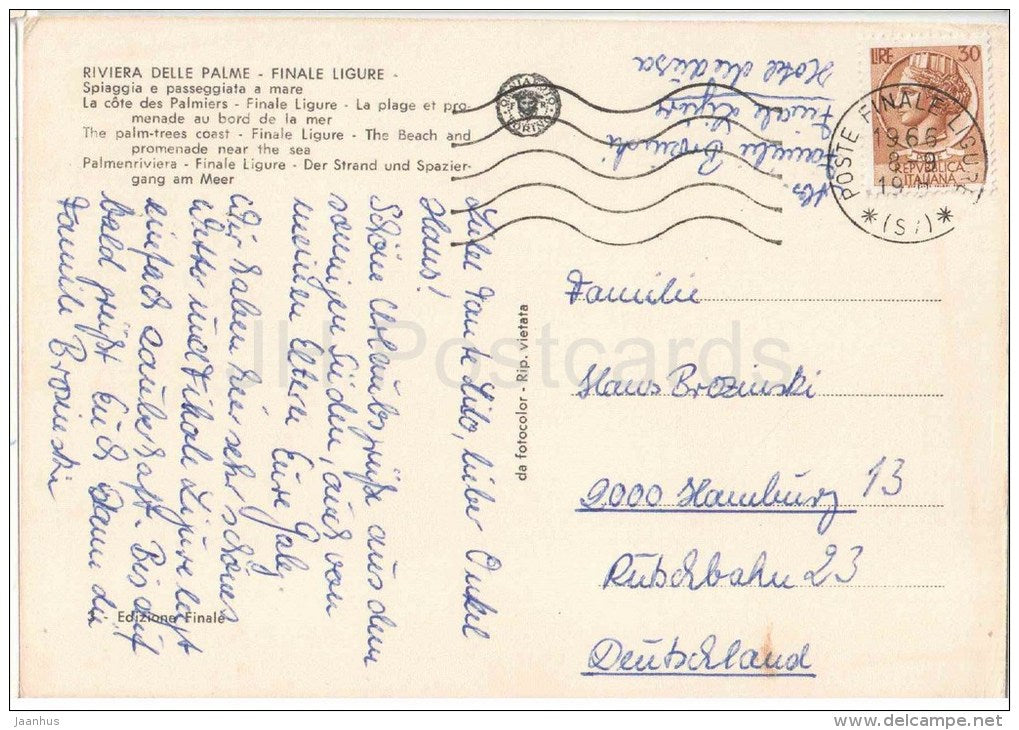 RIVIERA DELLE PALME - FINALE LIGURE -
Spiaggia e passeggiata a mare
La côte des Palmiers - Finale Ligure - La plage et pro-
menade au bord de la mer
The palm-trees coast - Finale Ligure - The Beach and
promenade near the sea
Palmenriviera - Finale Ligure - Der Strand und Spazier-
gang am Meer
LIRE 30
REPVBBLICA
ITALIANA
POSTE FINALE LIGURE
1966
8-9
19
*(S.)*
Familie Brozinski
Finale Ligure
Hotel Medusa
Liebe Tante Lilo, lieber Onkel
Hans!
Schöne Urlaubsgrüße aus dem
sonnigen Süden, auch von
meinen Eltern Eure Gaby
Wir haben hier sehr schönes
Wetter und Finale Ligure liegt
einfach zauberhaft. Bis auf
bald grüßt Euch dann die
Familie Brozinski
da fotocolor - Rip. vietata
Familie
Hans Brozinski
2000 Hamburg 13
Rutschbahn 23
Deutschland
- Edizione Finale
JH Postcards
Jaanhus
www.delcampe.net